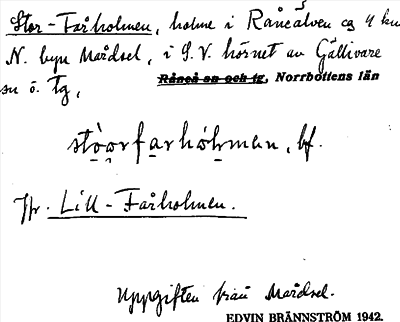 Stor-Fårholmen, holme i Råneälven ca 4 km
N. byn Mårdsel, i S.V. hörnet av Gällivare
Råneå sn och tg, Norrbottens län
sn o. tg,
stòo̱rfa̱rhòḻmen, bf.
Jfr. Lill-Fårholmen.
Uppgiften från Mårdsel.
EDVIN BRÄNNSTRÖM 1942.